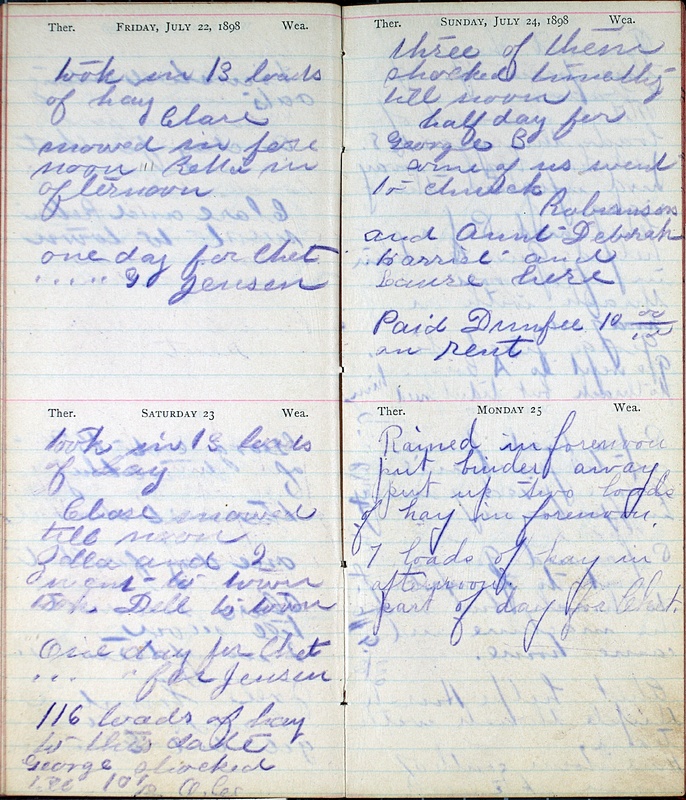 Ther. FRIDAY, JULY 22, 1898 Wea.
took in 13 loads
of hay
Clare
mowed in fore
noon " Zella in
afternoon
one day for Chet
" " " " Jensen
Ther. SATURDAY 23 Wea.
took in 13 loads
of hay
Clare mowed
till noon
Zella and I
went to town
took Dell to town
One day for Chet
" " " for Jensen
116 loads of hay
to this date
George shocked
Ther. SUNDAY, JULY 24, 1898 Wea.
three of them
shocked timothy
till noon
half day for
George B
some of us went
to church
Robinsons
and Aunt Deborah
and
Laura here
Paid Dunfee 10 00/100
on rent
Ther. MONDAY 25 Wea.
Rained in forenoon
put binder away
put up two loads
of hay in forenoon.
7 loads of hay in
afternoon.
part of day for Chet.